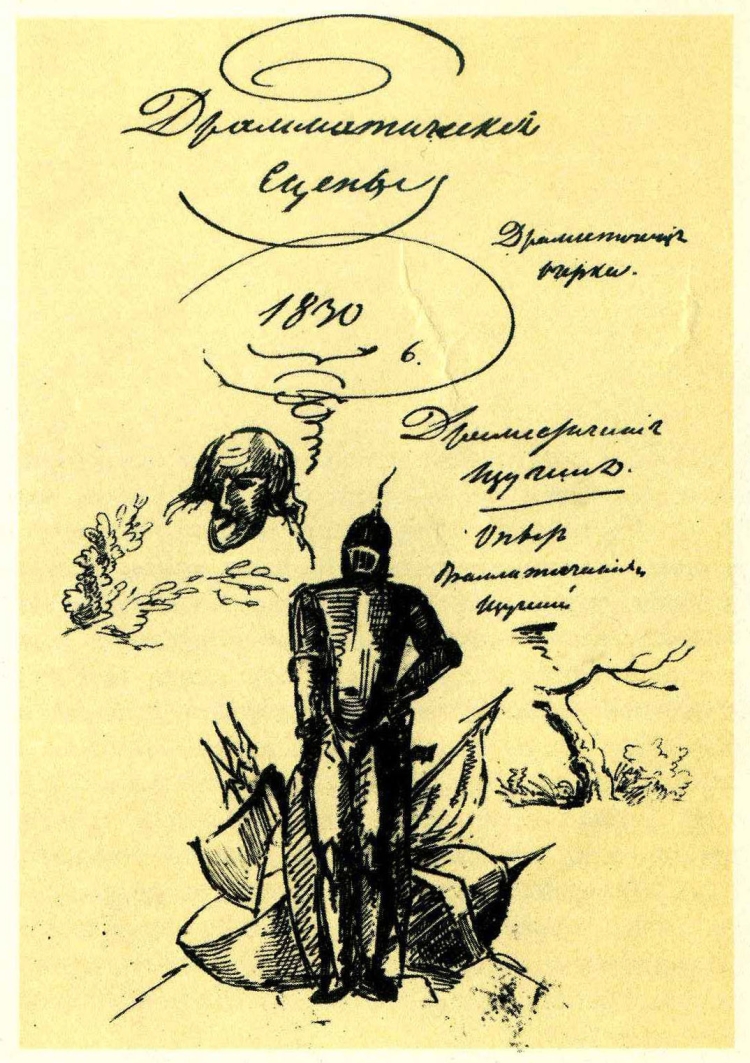 Драмматическія
Сцены
Драматическія
очерки.
1830
Драматическія
изученія.
Опыт
драмматических
изучений